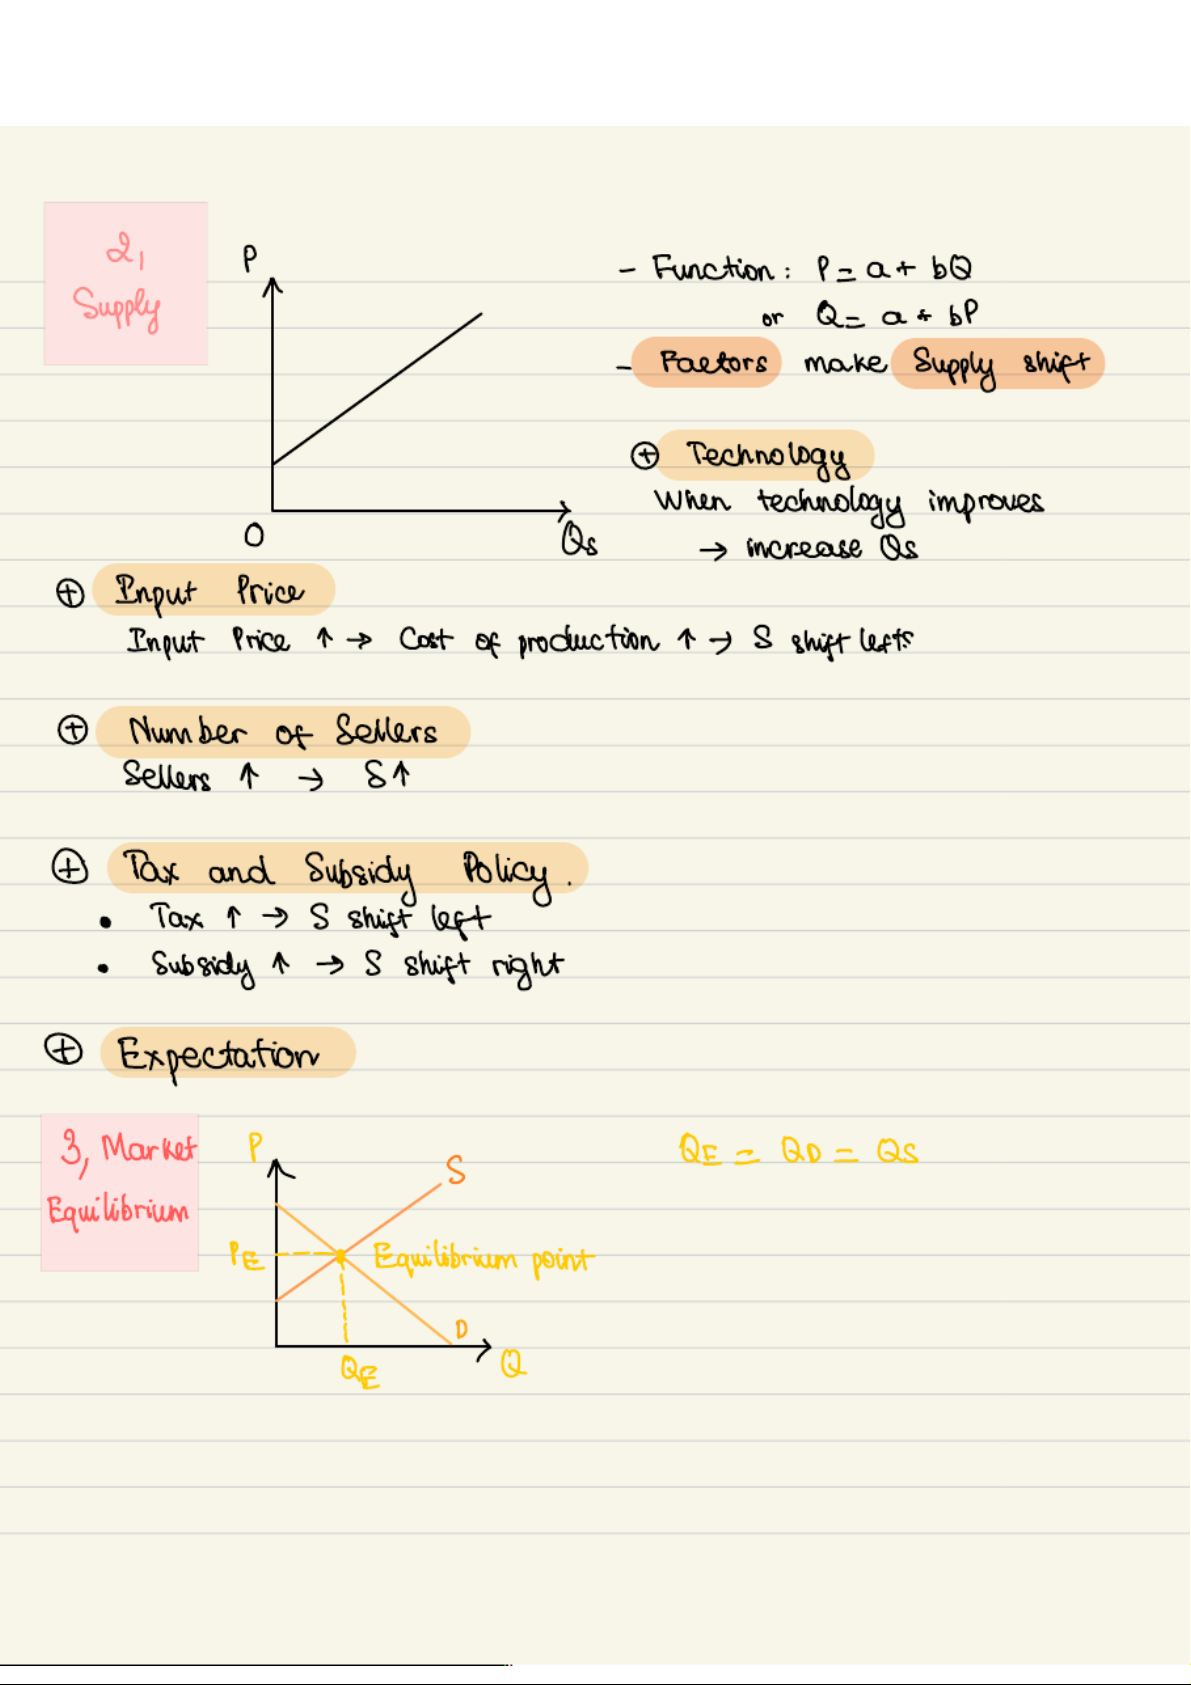 2,
Supply
P
O
Qs
- Function: P = a + bQ
or Q = a + bP
- Factors make Supply shift
⊕ Technology
When technology improves
→ increase Qs
⊕ Input Price
Input Price ↑ → Cost of production ↑ → S shift left
⊕ Number of Sellers
Sellers ↑ → S↑
⊕ Tax and Subsidy Policy.
• Tax ↑ → S shift left
• Subsidy ↑ → S shift right
⊕ Expectation
3, Market
Equilibrium
P
S
PE
Equilibrium point
D
QE
Q
QE = QD = QS